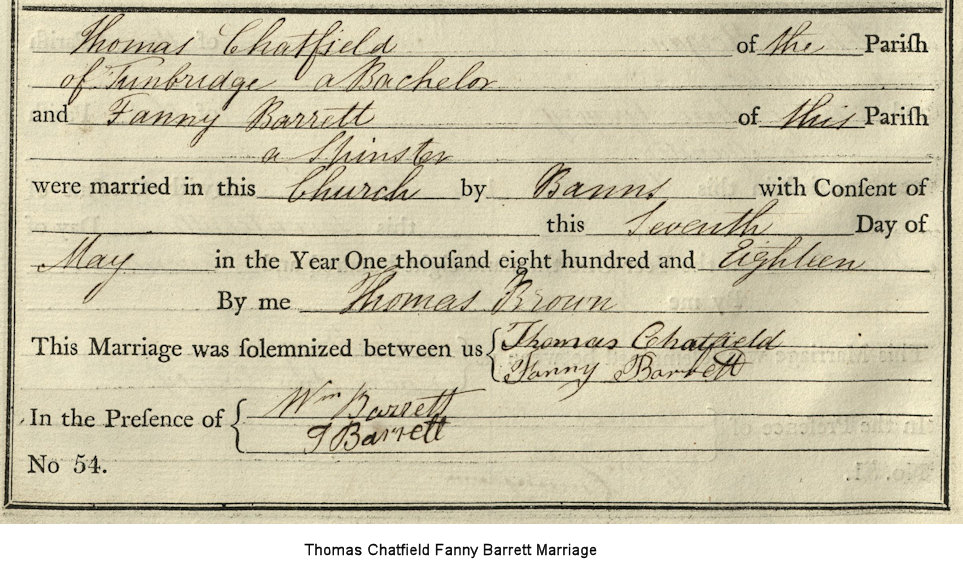 Thomas Chatfield of the Pariſh
of Tunbridge a Bachelor
and Fanny Barrett of this Pariſh
a Spinster
were married in this Church by Banns with Conſent of
this Seventh Day of
May in the Year One thouſand eight hundred and Eighteen
By me Thomas Brown
This Marriage was ſolemnized between us { Thomas Chatfield
Fanny Barrett
In the Preſence of { Wm Barrett
J Barrett
No 54.
Thomas Chatfield Fanny Barrett Marriage